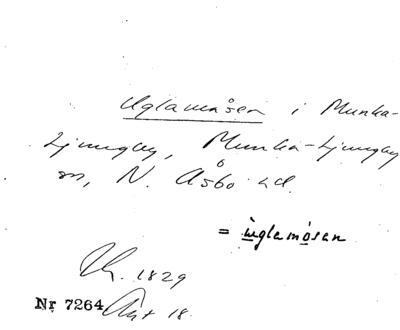 Uglamåsen i Munka-
Ljungby, Munka-Ljungby
sn, N. Åsbo hd.
= üglamosan
1829
Nr 7264 Akt 18.